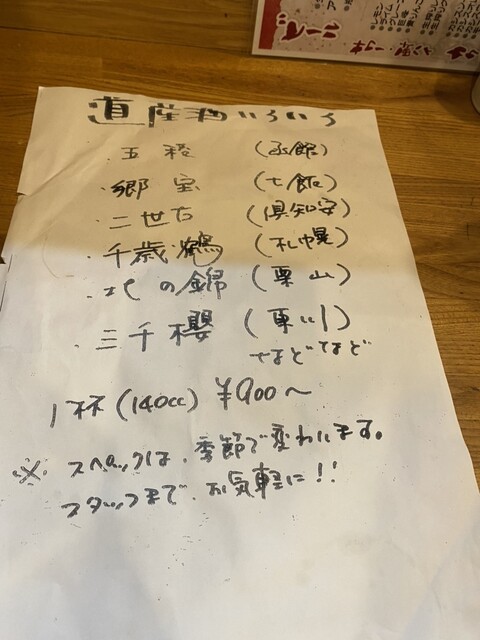 ビール
道産酒いろいろ
・五稜 (函館)
・郷宝 (七飯)
・二世古 (倶知安)
・千歳鶴 (札幌)
・北の錦 (栗山)
・三千櫻 (東川)
などなど
1杯(140cc) ¥900〜
※ スペックは、季節で変わります。
スタッフまで、お気軽に!!